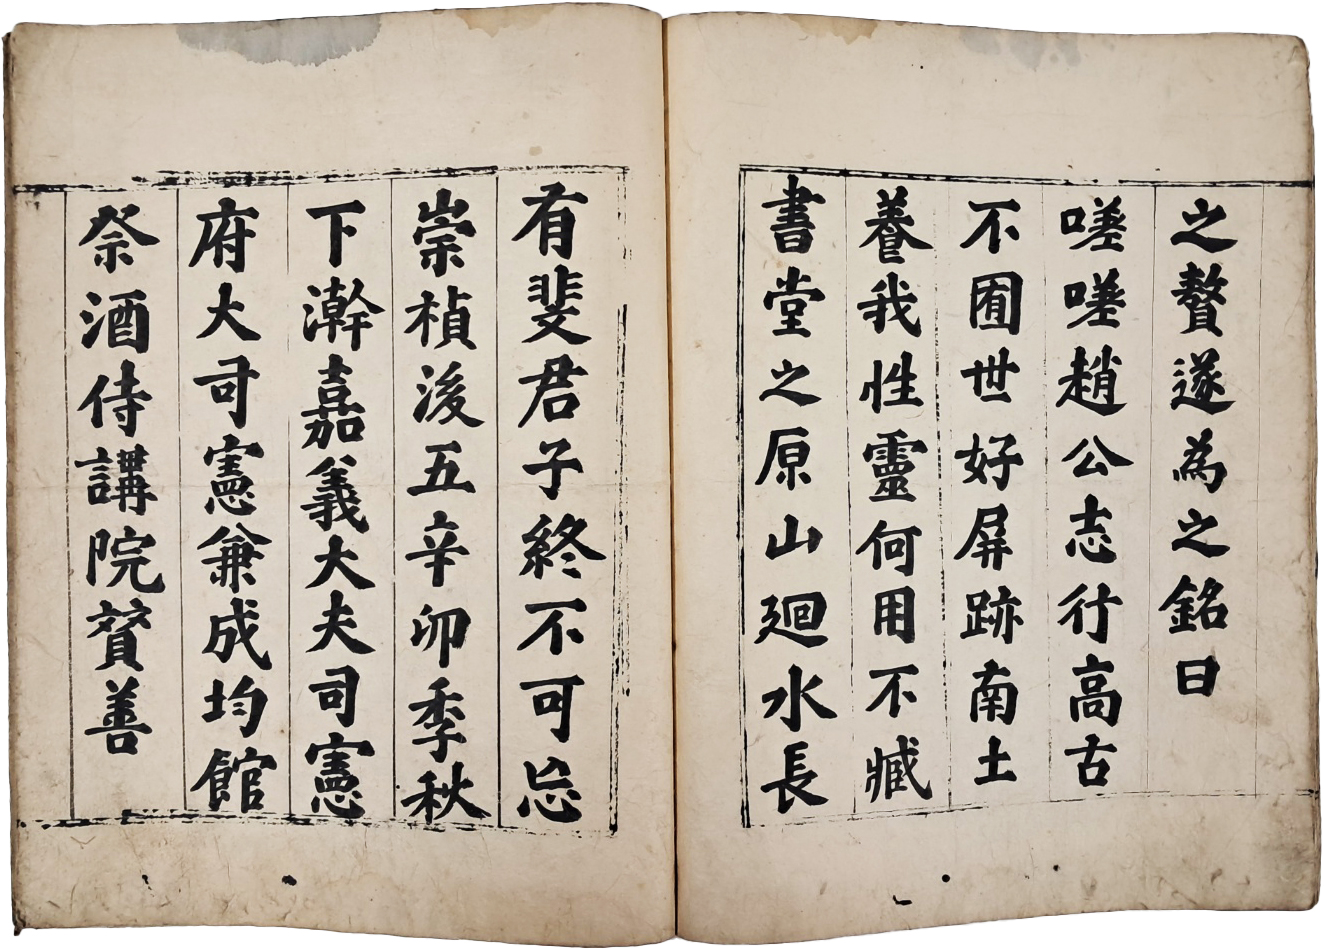 之贅遂為之銘曰
嗟嗟趙公志行高古
不囿世好屏跡南土
養我性靈何用不臧
書堂之原山廻水長
有斐君子終不可忘
崇楨後五辛卯季秋
下澣嘉義大夫司憲
府大司憲兼成均館
祭酒侍講院贊善